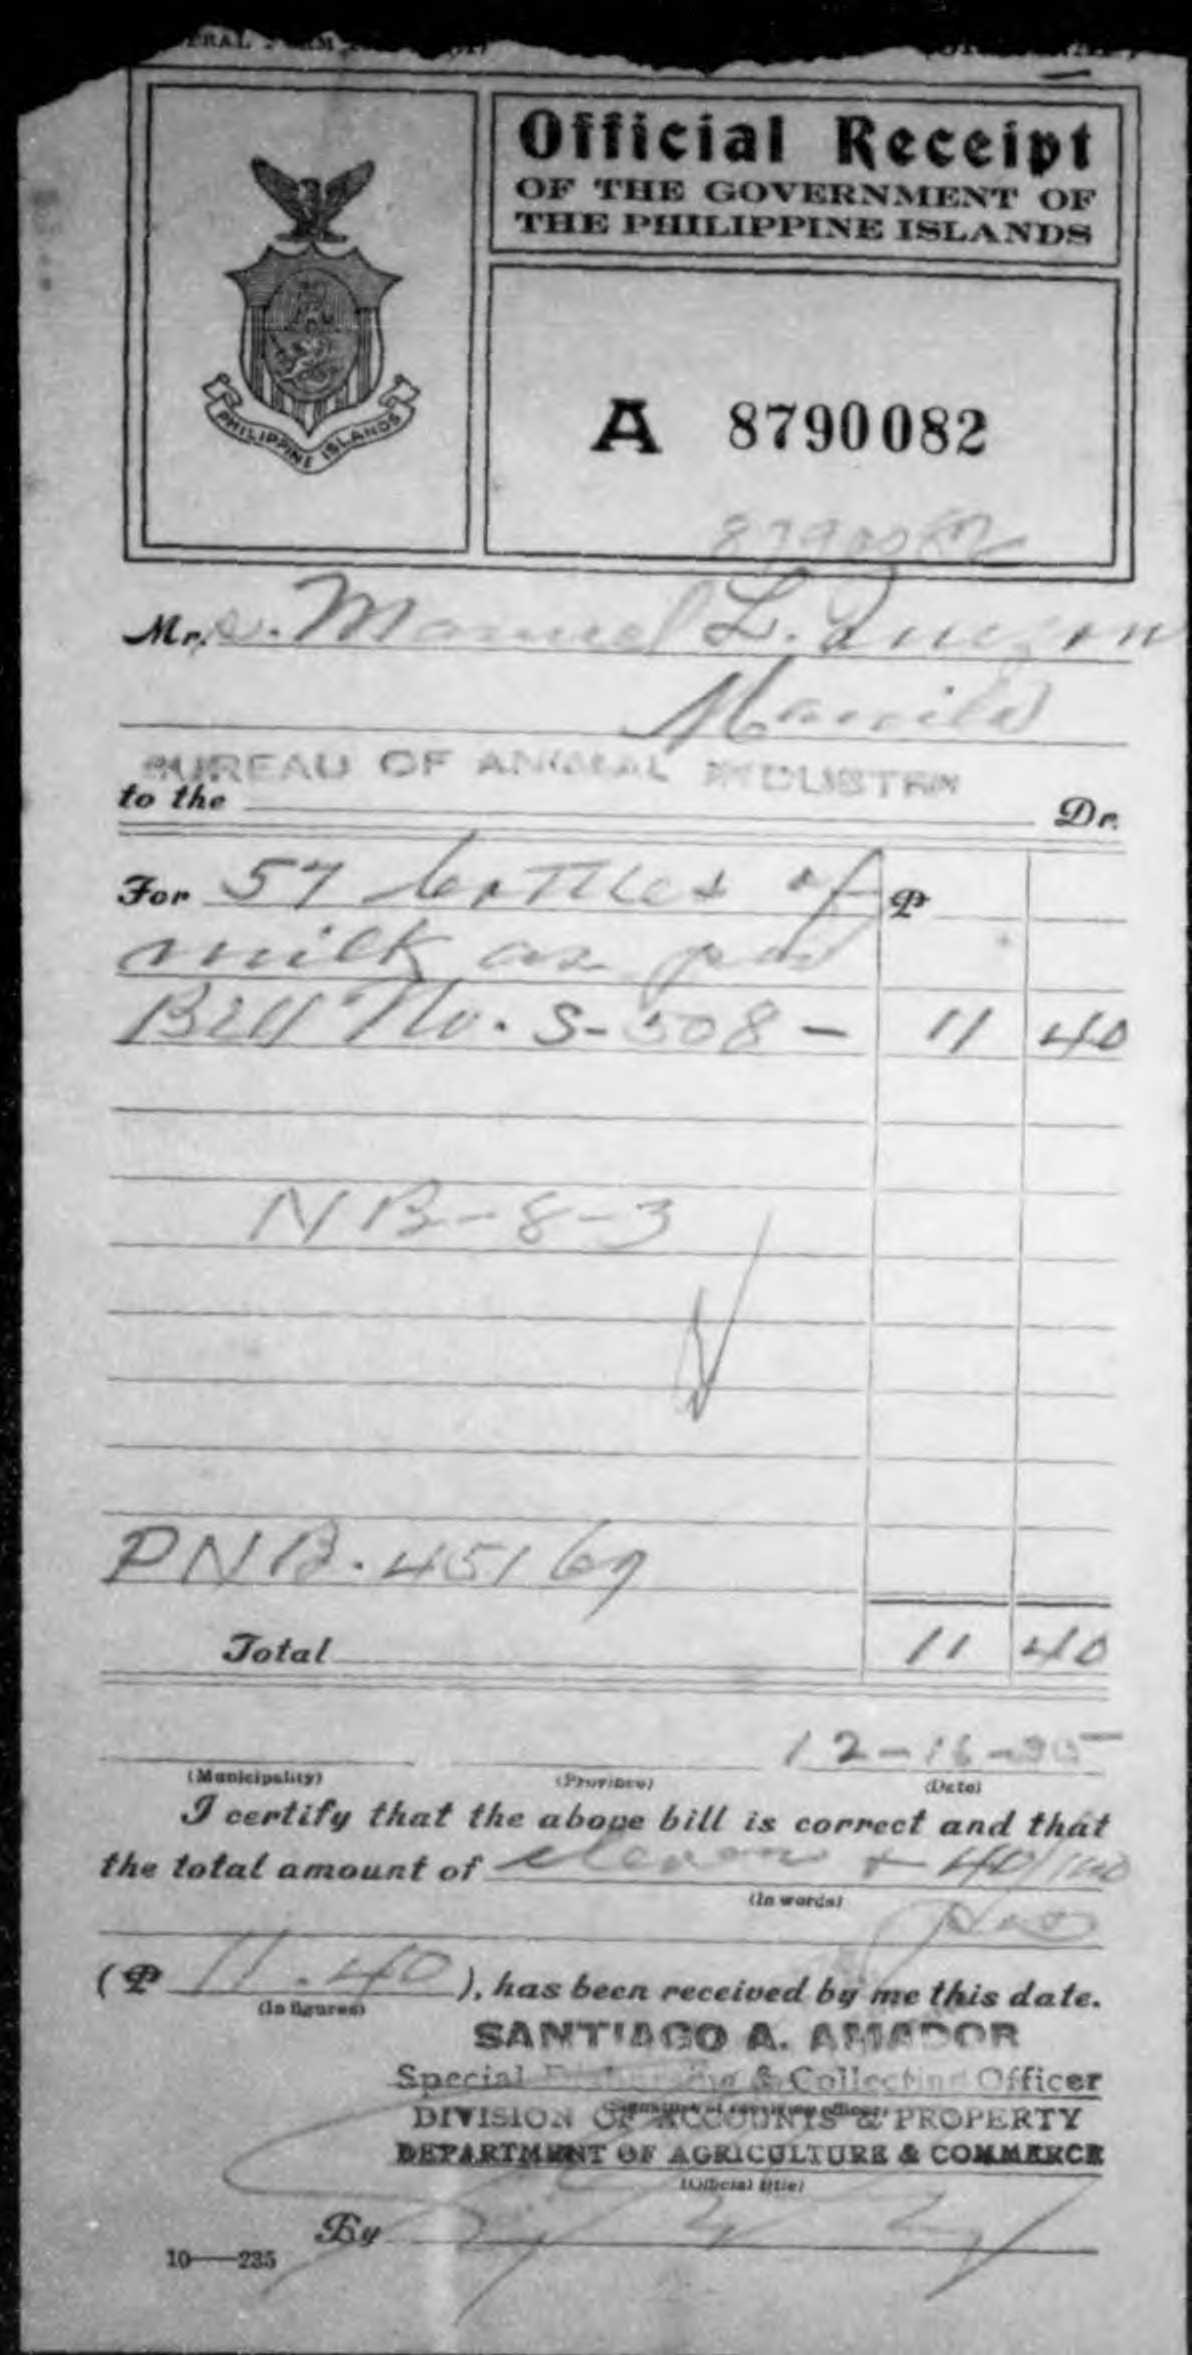 Official Receipt
OF THE GOVERNMENT OF
THE PHILIPPINE ISLANDS
PHILIPPINE ISLANDS
A 8790082
8790082
Mrs. Manuel L. Quezon
Manila
BUREAU OF ANIMAL INDUSTRY
to the Dr.
For 57 bottles of ₱
milk as per
Bill No. S-508 - 11 40
NB-8-3
PNB. 45169
Total 11 40
12-16-35
(Municipality) (Province) (Date)
I certify that the above bill is correct and that
the total amount of eleven + 40/100
(In words)
(₱ 11.40 ), has been received by me this date.
(In figures)
SANTIAGO A. AMADOR
Special Disbursing & Collecting Officer
DIVISION OF ACCOUNTS & PROPERTY
DEPARTMENT OF AGRICULTURE & COMMERCE
(Official title)
By
10—235